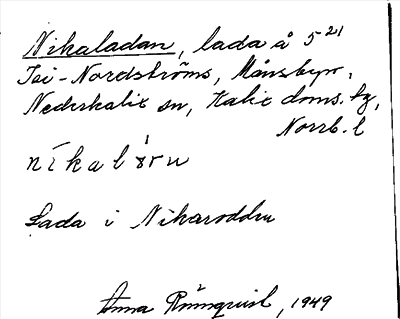 Nikaladan, lada å 5²¹
Isi-Nordströms, Månsbyn,
Nederkalix sn, Kalix doms. hg,
Norrb. l
níkalòru
Lada i Nikaroddu
Anna Rönnquist, 1949